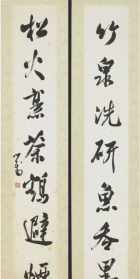 竹泉洗研魚吞墨
松火煮茶鶴避煙